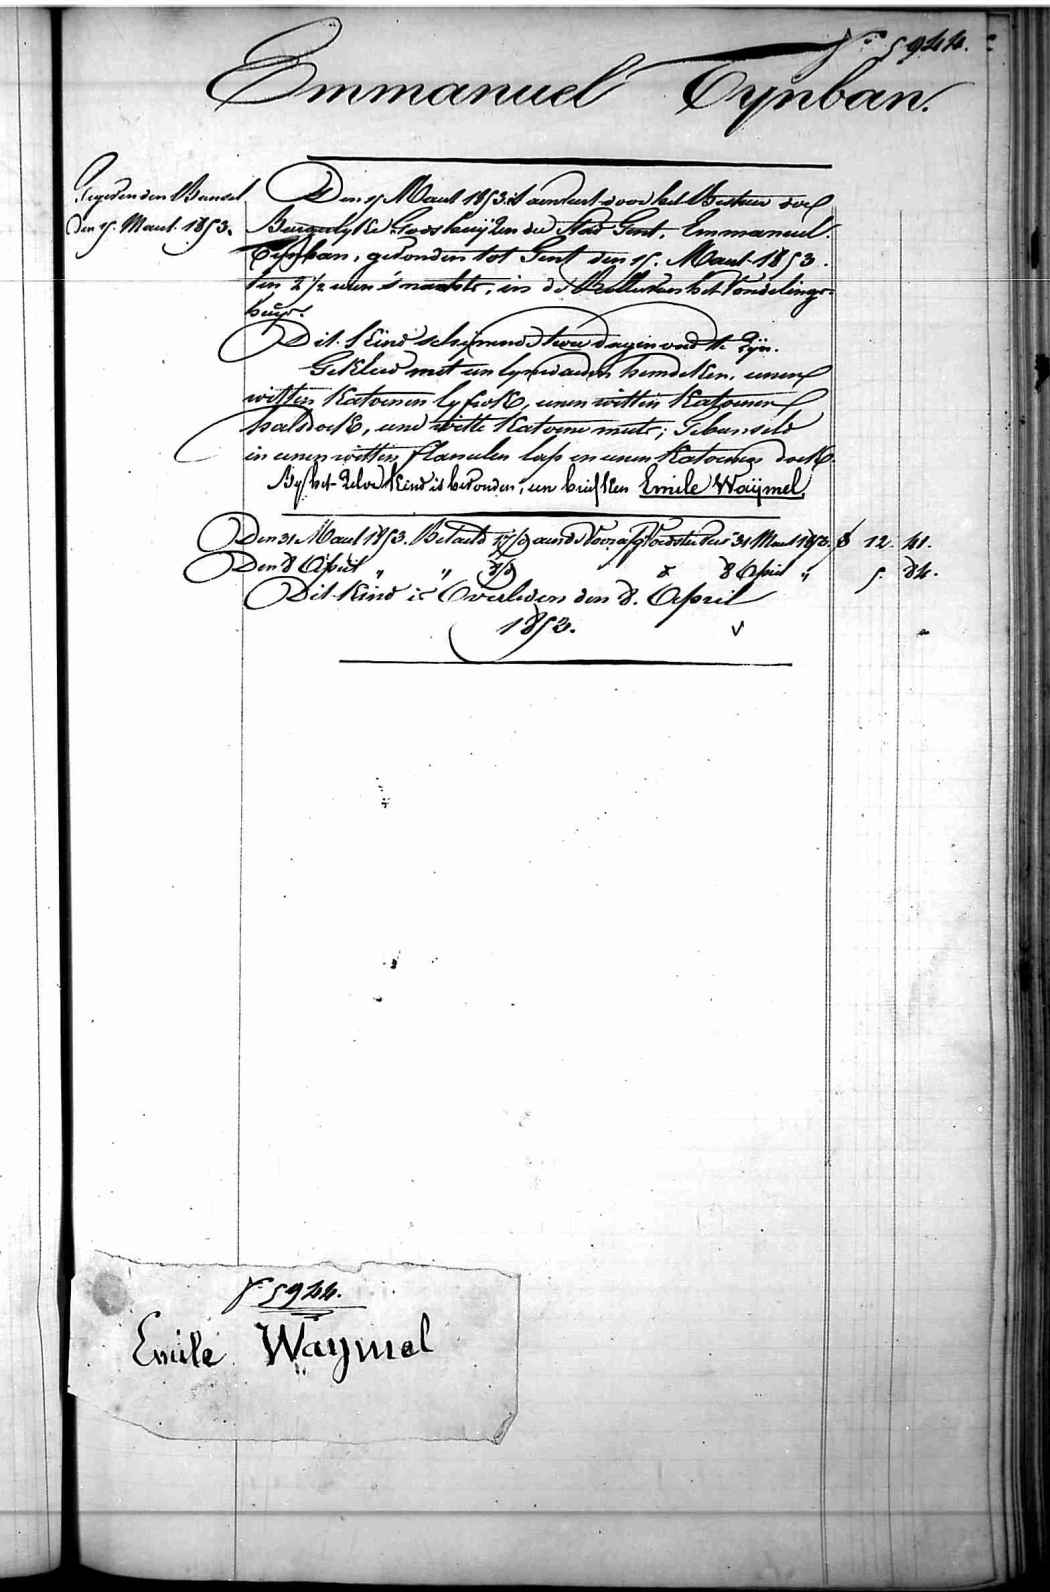 N° 5944.
Emmanuel Tynban.
Gegeven den Bundel
den 15. Maert. 1853.
Den 15 Maert 1853. is aenveert door het Bestuer der
Burgerlyke Godshuyzen der Stad Gent, Emmanuel
Tynban, gevonden tot Gent den 15. Maert 1853.
ten 2 1/2 uren s'nachts, in de Rolle van het Vondelings-
huys.
Dit Kind schynende twee dagen oud te zyn.
Gekleed met een lynwaeden hemdeken, eenen
witten Katoenen lyfrok, eenen witten Katoenen
halsdoek, eene witte Katoene muts; Gebunseld
in eenen witten flanelen lap en eenen Katoenen doek.
By het zelve Kind is bevonden, een briefken Emile Waÿmel.
Den 31 Maert 1853. Betaeld 17/9 aen de Voorzorg Voedster tot 31 Maert 1853. f 12. 41.
Den 8 April " " 8/9 " 8 April " 5. 84.
Dit Kind is Overleden den 8. April
1853. v
N° 5944.
Emile Waÿmel